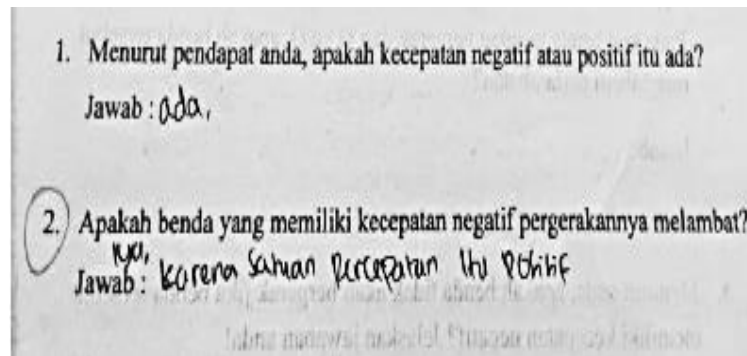 1. Menurut pendapat anda, apakah kecepatan negatif atau positif itu ada?
Jawab : ada,
2. Apakah benda yang memiliki kecepatan negatif pergerakannya melambat?
iya,
Jawab : karena satuan percepatan itu positif